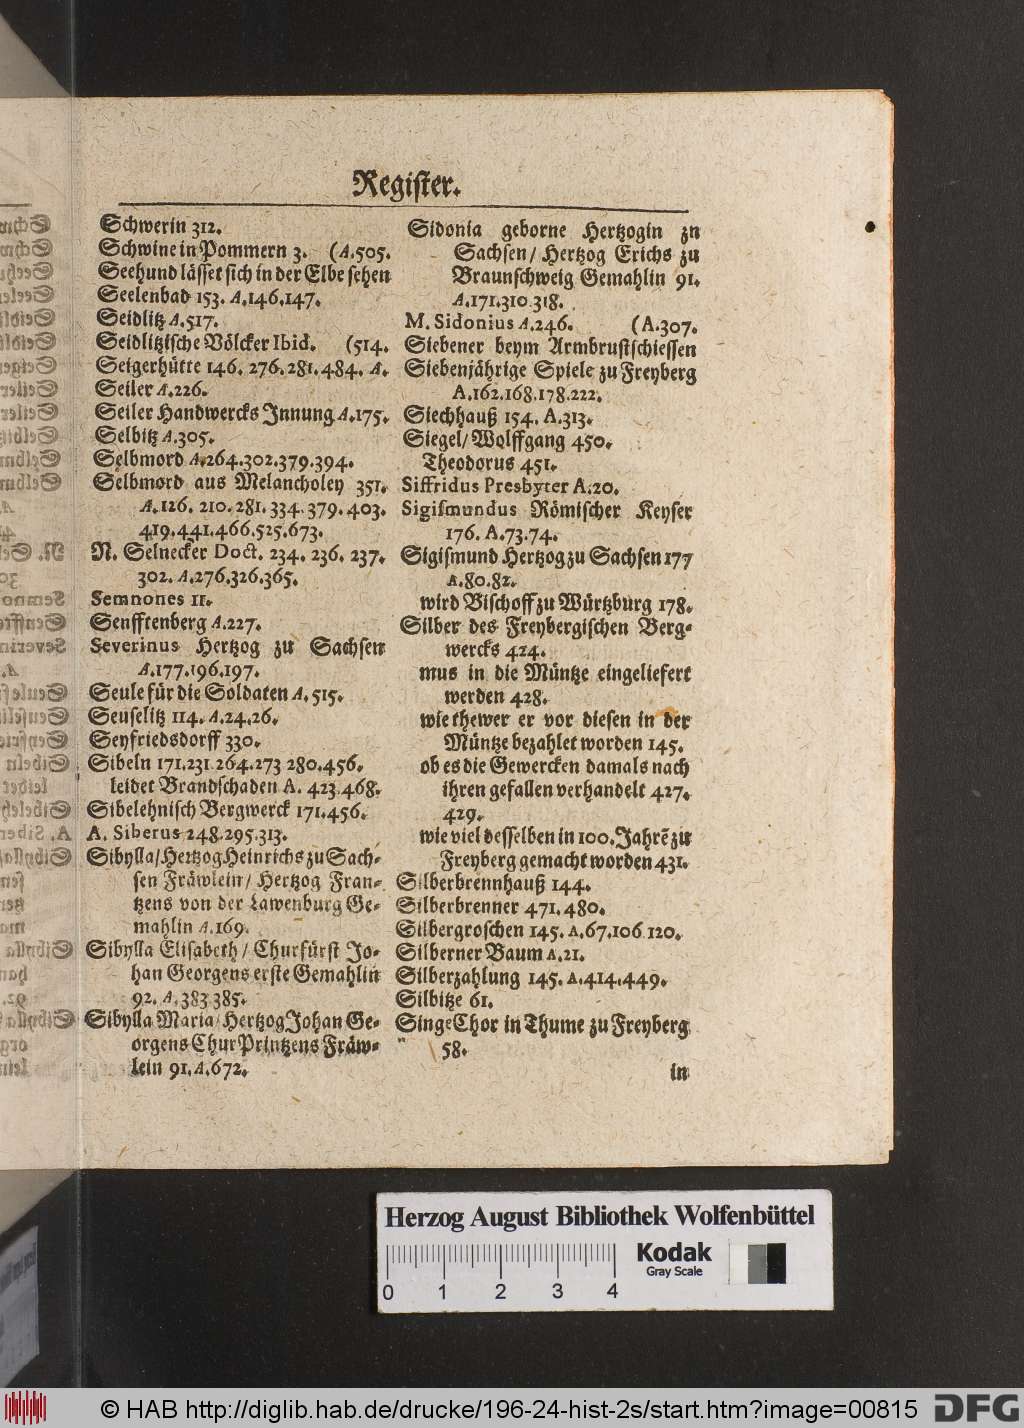 Register.
Schwerin 312.
Schwine in Pommern 3. (A.505.
Seehund lässet sich in der Elbe sehen
Seelenbad 153. A.146.147.
Seidlitz A.517.
Seidlitzische Völcker Ibid. (514.
Seigerhütte 146. 276. 281. 484. A.
Seiler A.226.
Seiler Handwercks Innung A.175.
Selbitz A.305.
Selbmord A.264.302.379.394.
Selbmord aus Melancholey 351.
A.126. 210. 281. 334. 379. 403.
419.441.466.525.673.
N. Selnecker Doct. 234. 236. 237.
302. A.276.326.365.
Semnones 11.
Senfftenberg A.227.
Severinus Hertzog zu Sachsen
A.177.196.197.
Seule für die Soldaten A. 515.
Seuselitz 114. A.24.26.
Seyfriedsdorff 330.
Sibeln 171.231.264.273 280.456.
leidet Brandschaden A. 423.468.
Sibelehnisch Bergwerck 171.456.
A. Siberus 248.295.313.
Sibylla/Hertzog Heinrichs zu Sach-
sen Fräwlein/ Hertzog Fran-
tzens von der Lawenburg Ge-
mahlin A.169.
Sibylla Elisabeth/ Churfürst Jo-
han Georgens erste Gemahlin
92. A.383 385.
Sibylla Maria/Hertzog Johan Ge-
orgens Chur Printzens Fräw-
lein 91.A.672.
Sidonia geborne Hertzogin zu
Sachsen/ Hertzog Erichs zu
Braunschweig Gemahlin 91.
A.171.310.318.
M. Sidonius A.246. (A.307.
Siebener beym Armbrustschiessen
Siebenjährige Spiele zu Freyberg
A.162.168.178.222.
Siechhauß 154. A.313.
Siegel/ Wolffgang 450.
Theodorus 451.
Siffridus Presbyter A.20.
Sigismundus Römischer Keyser
176. A.73.74.
Sigismund Hertzog zu Sachsen 177
A.80.82.
wird Bischoff zu Würtzburg 178.
Silber des Freybergischen Berg-
wercks 424.
mus in die Müntze eingeliefert
werden 428.
wie thewer er vor diesen in der
Müntze bezahlet worden 145.
ob es die Gewercken damals nach
ihren gefallen verhandelt 427.
429.
wie viel desselben in 100. Jahrē zu
Freyberg gemacht worden 431.
Silberbrennhauß 144.
Silberbrenner 471.480.
Silbergroschen 145. A.67.106 120.
Silberner Baum A.21.
Silberzahlung 145. A.414.449.
Silbitze 61.
Singe Chor in Thume zu Freyberg
58.
in
Herzog August Bibliothek Wolfenbüttel
Kodak
Gray Scale
0 1 2 3 4
© HAB http://diglib.hab.de/drucke/196-24-hist-2s/start.htm?image=00815
DFG